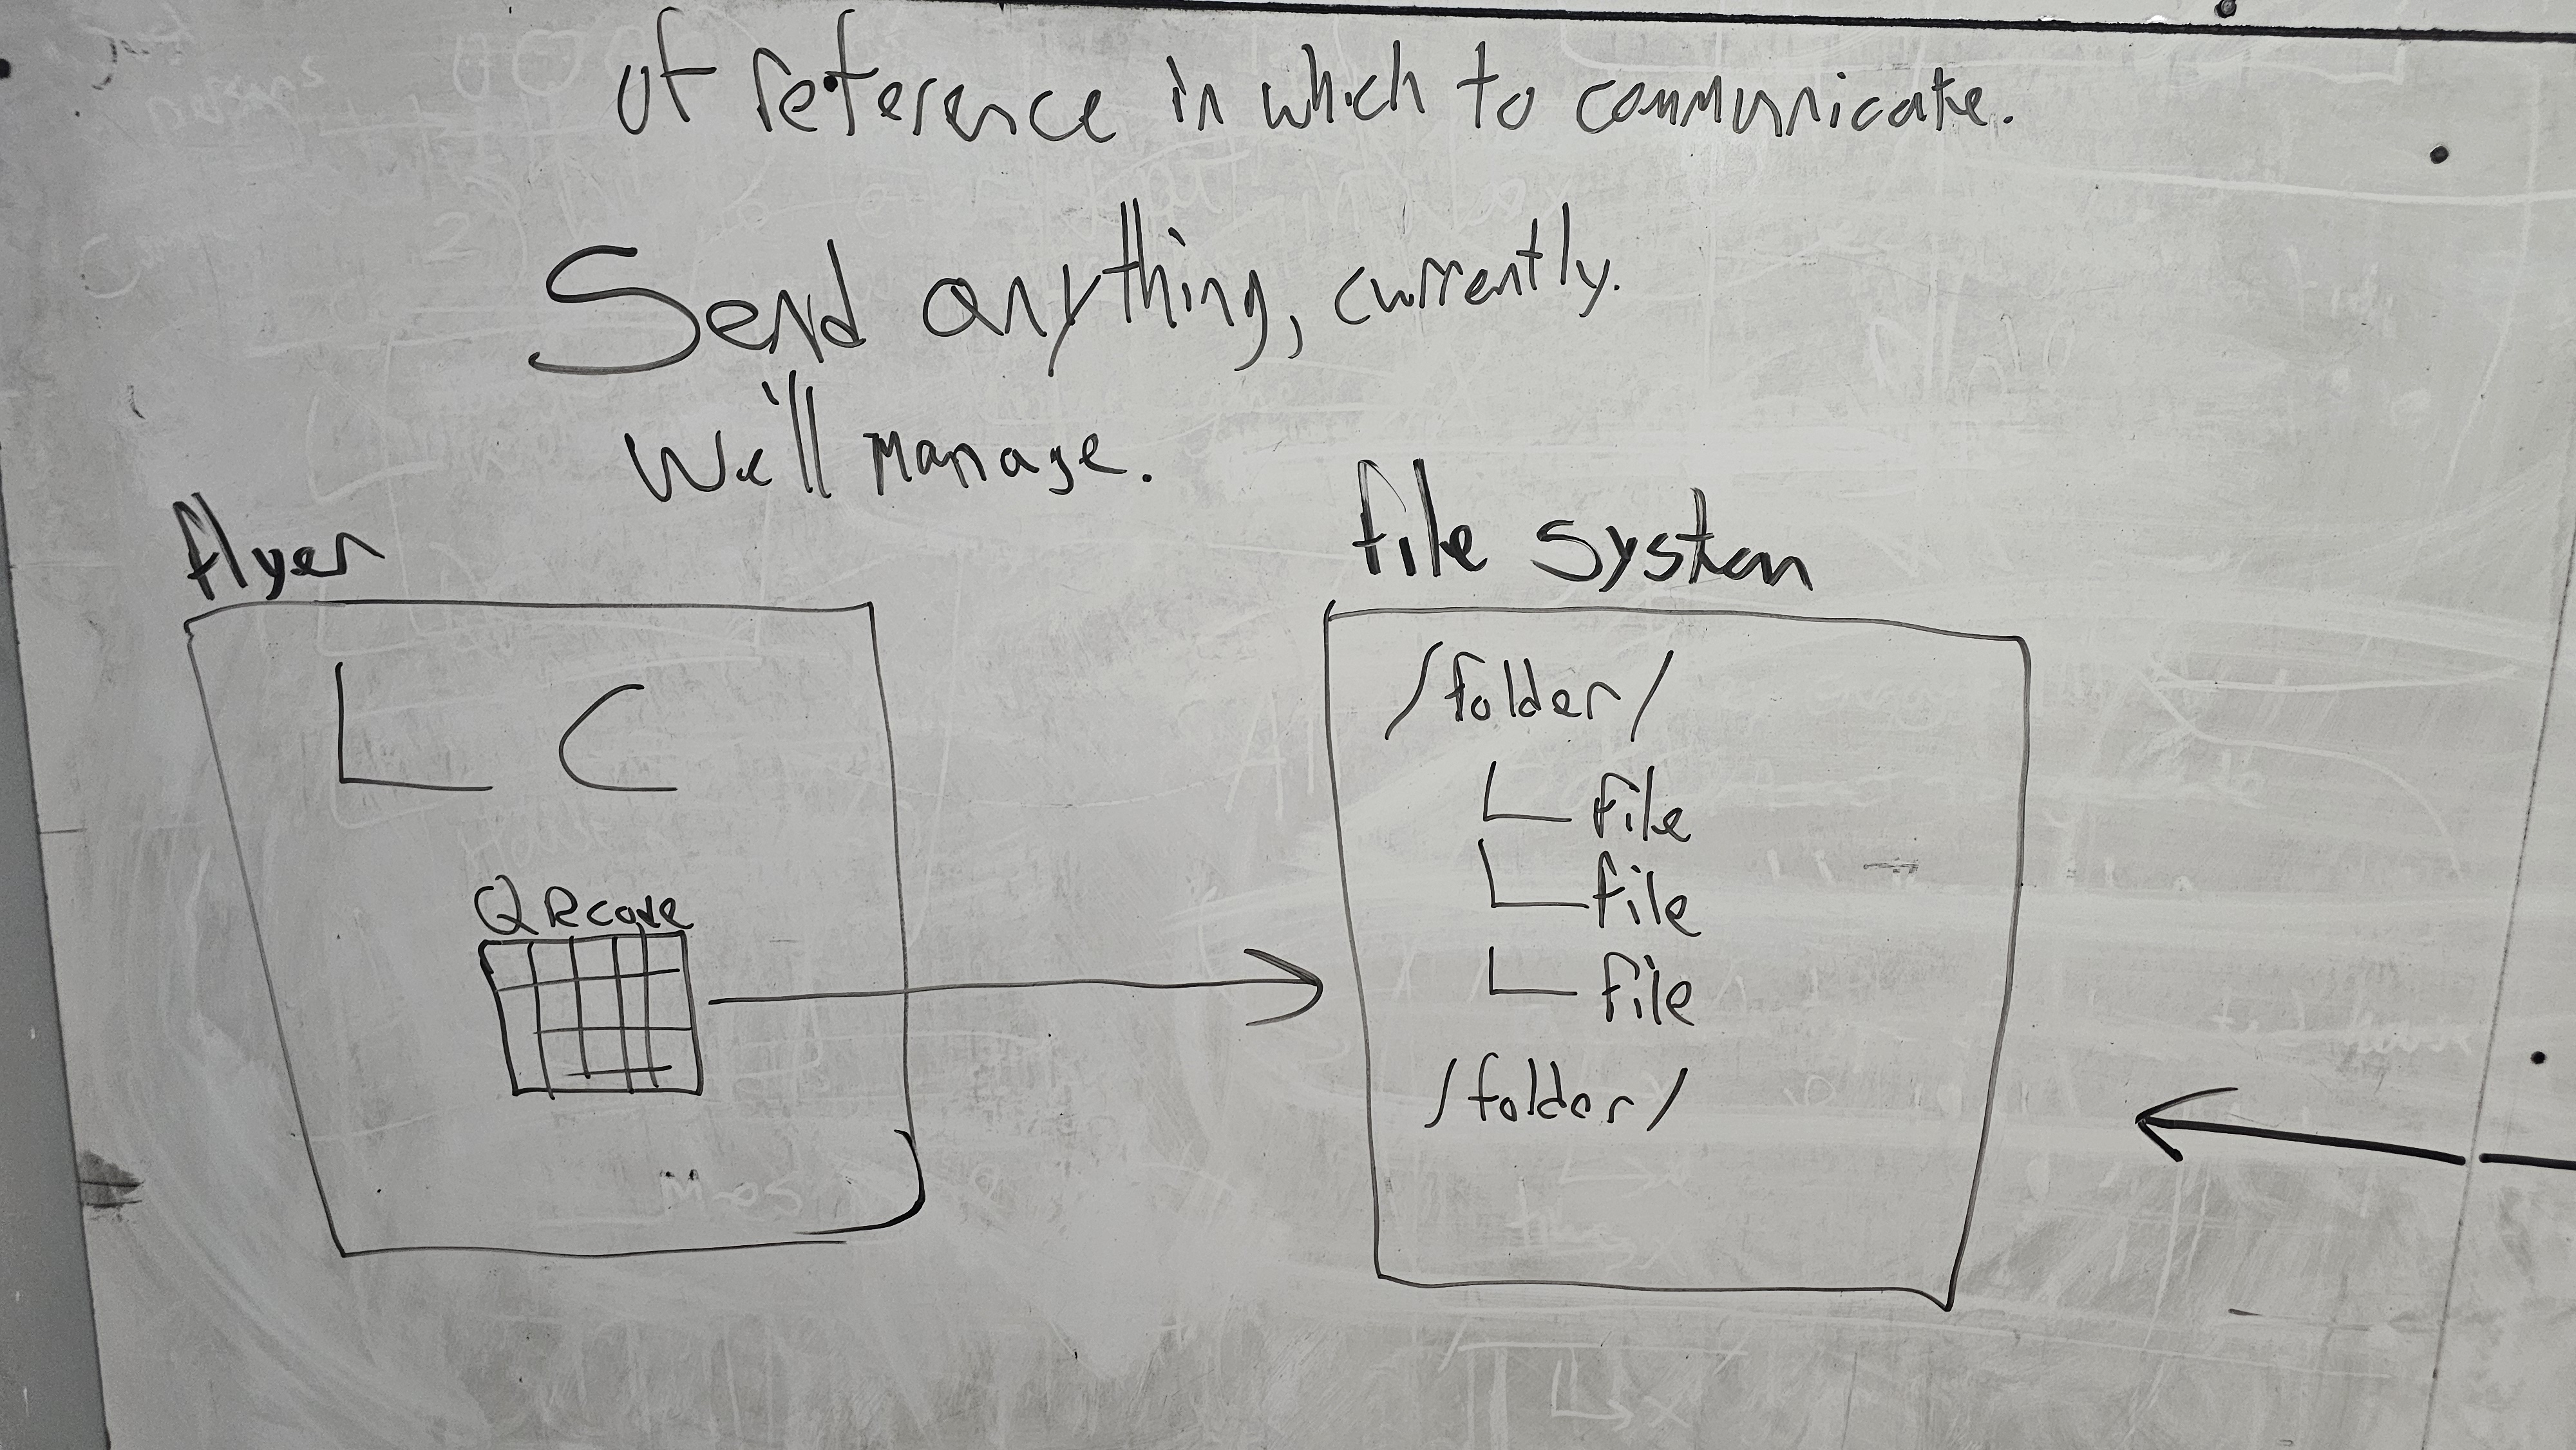 of reference in which to communicate.
Send anything, currently.
We'll manage.
flyer
L C
QR code
file system
/folder/
file
file
file
/folder/